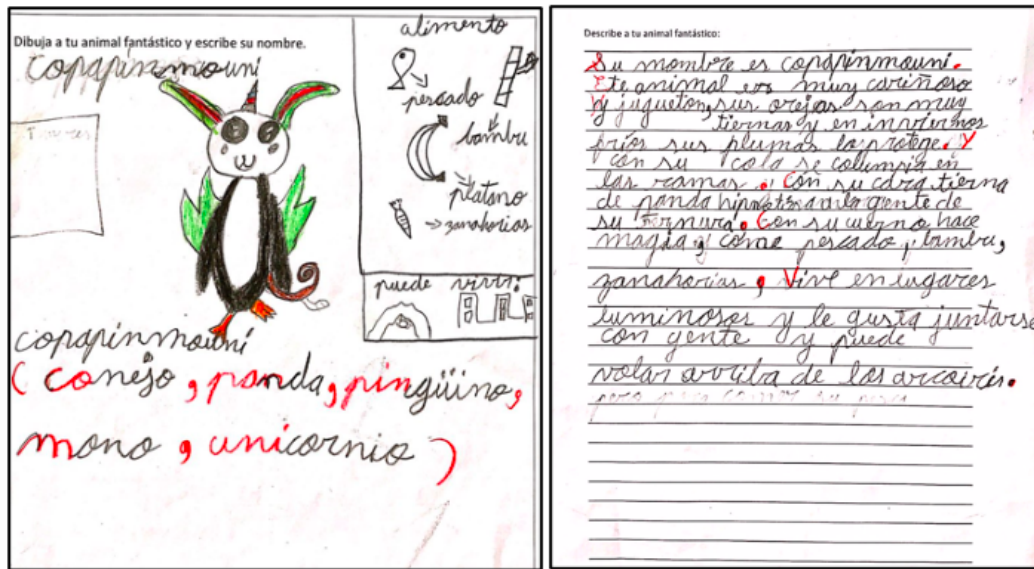 Dibuja a tu animal fantástico y escribe su nombre.
copapinmouni
alimento
pescado
bambu
platano
zanahorias
puede vivir:
copapinmouni
(conejo, panda, pingüino,
mono, unicornio)
Describe a tu animal fantástico:
Su nombre es copapinmouni.
Este animal es muy cariñoso
y jugueton, sus orejas son muy
tiernas y en inviernos
frios sus plumas lo protege. Y
con su cola se columpia en
las ramas. Con su cara tierna
de panda hipnotiza a la gente de
su ternura. Con su cuerno hace
magia y come pescado, bambu,
zanahorias, Vive en lugares
luminosos y le gusta juntarse
con gente y puede
volar arriba de los arcoiris.